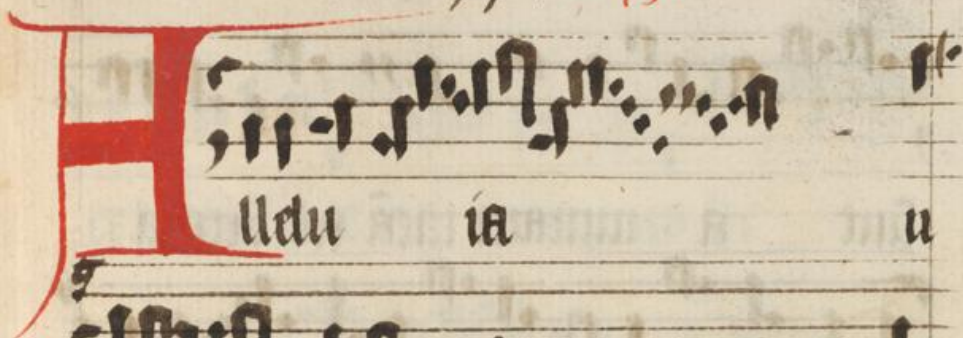 Alleluia u